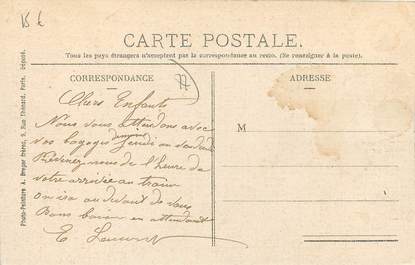 15 €
CARTE POSTALE.
Tous les pays étrangers n'acceptent pas la correspondance au recto. (Se renseigner à la poste).
CORRESPONDANCE
ADRESSE
M
Chers Enfants
Nous vous attendons avec
vos bagages Jeudi ou
Prévenez nous de l'heure de
votre arrivée au train
on ira au devant de vous
Bons baisers en attendant
E
Photo-Peinture A. Breger frères, 9, Rue Thénard, Paris. Déposé.